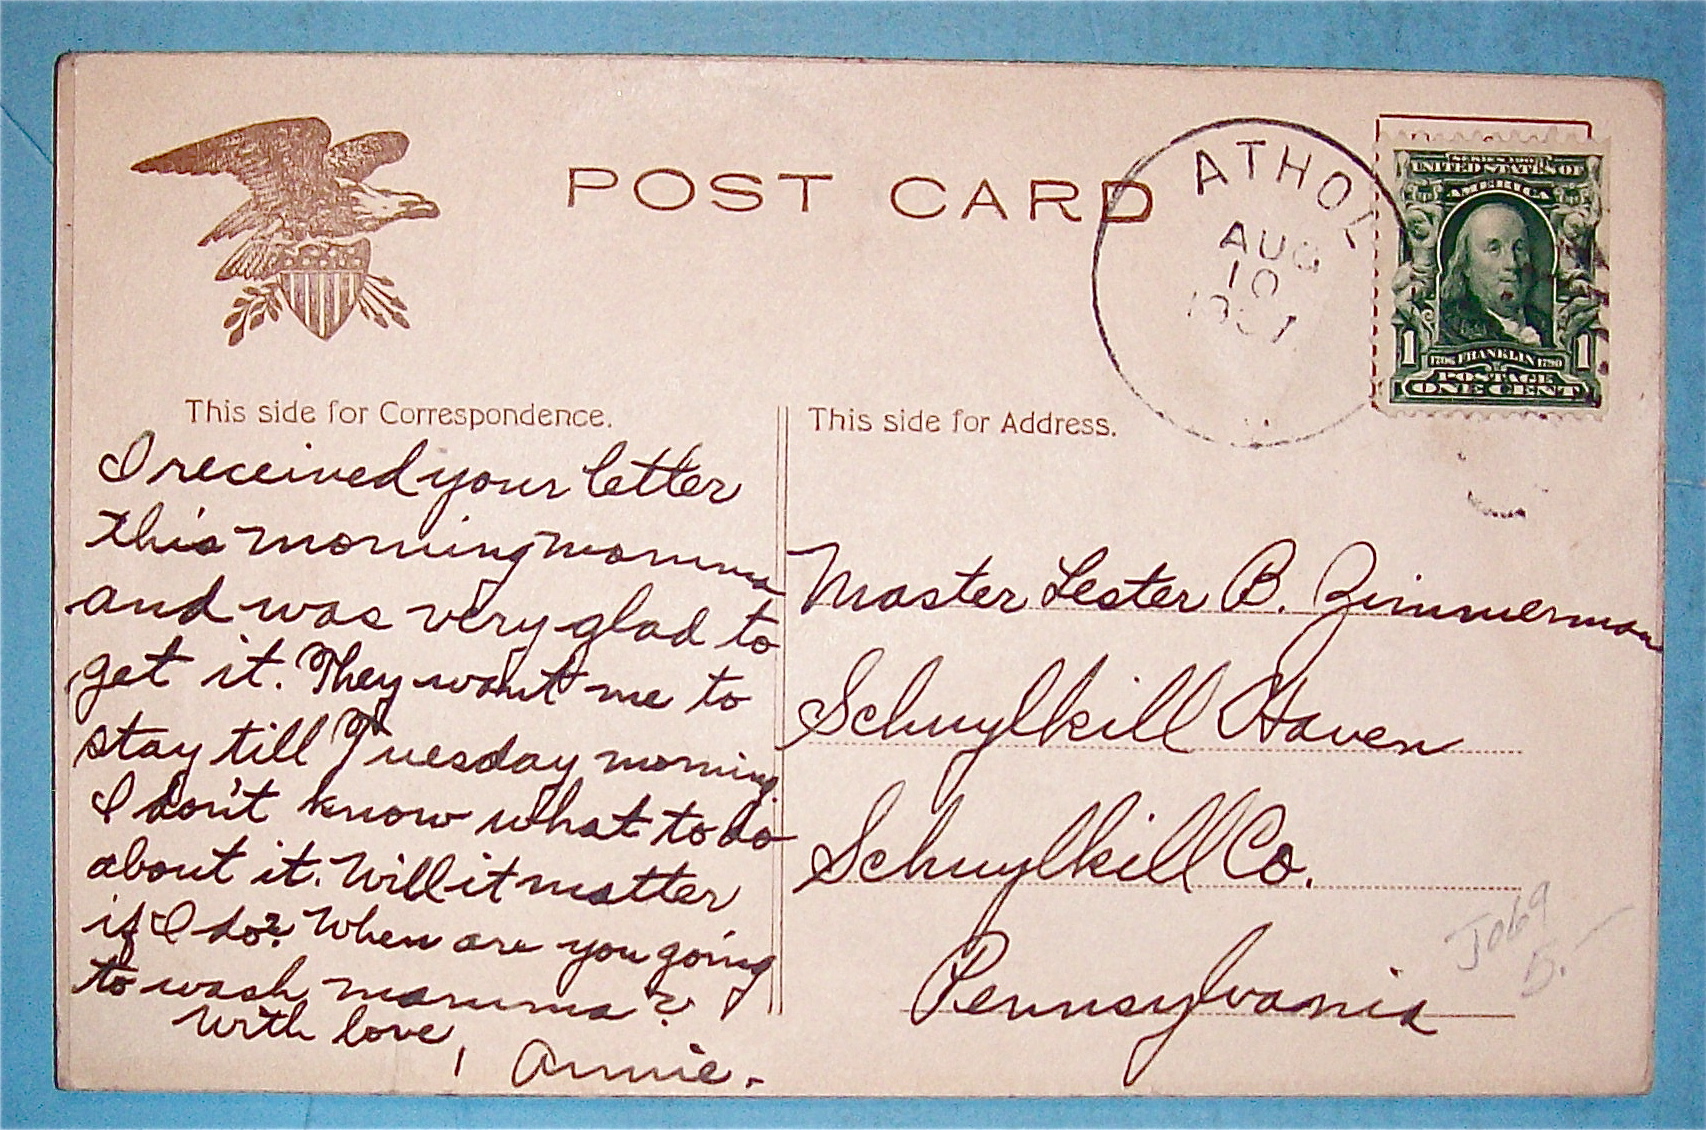 POST CARD
ATHOL
AUG
10
SERIES 1902
UNITED STATES OF
AMERICA
1 1
FRANKLIN
POSTAGE
ONE CENT
This side for Correspondence.
I received your letter
this morning mamma
and was very glad to
get it. They want me to
stay till Tuesday morning.
I don't know what to do
about it. Will it matter
if I do? When are you going
to wash mamma?
With love,
Annie.
This side for Address.
Master Lester B. Zimmerman
Schuylkill Haven
Schuylkill Co.
Pennsylvania
J069
5.–